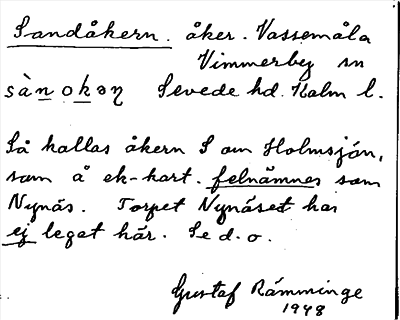 Sandåkern. åker. Vassemåla
Vimmerby sn
sànokəṇ Sevede hd. Kalm l.
Så kallas åkern S om Holmsjön,
som å ek-kart. felnämnes som
Nynäs. Torpet Nynäset har
ej legat här. Se d. o.
Gustaf Rämminge
1948